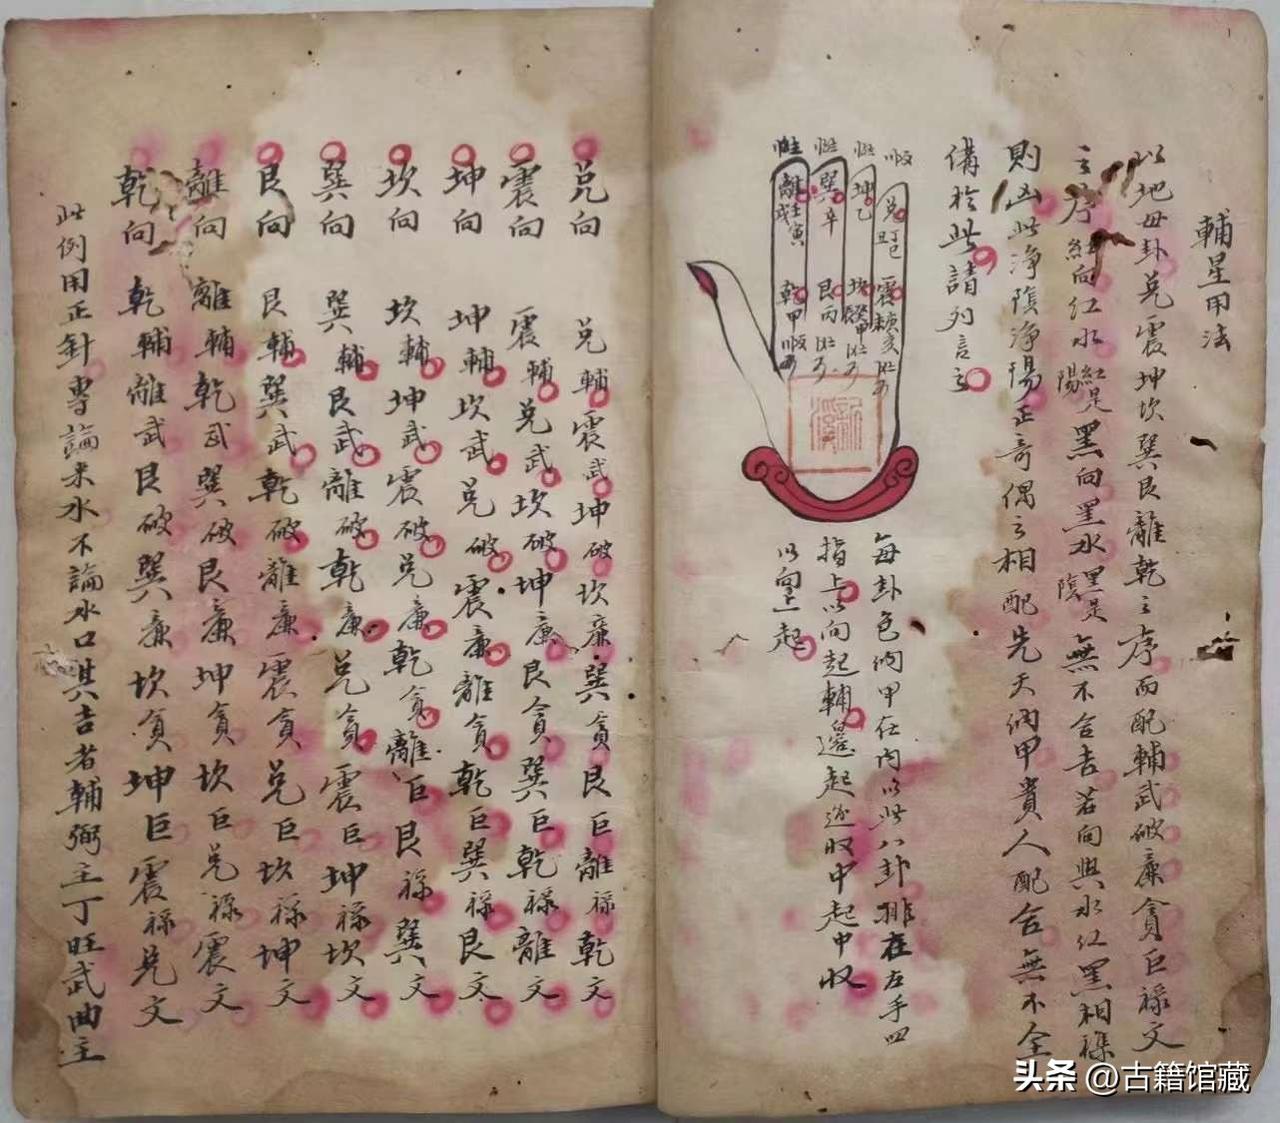 輔星用法
以地母卦兌震坤坎巽艮離乾之序而配輔武破廉貪巨祿文
之序紅向紅水紅是陽黑向黑水黑是陰無不合吉若向與水紅黑相雜
則凶此淨陰淨陽正奇偶之相配先天納甲貴人配合無不全
備於此請列言之
兌丁巳丑
震庚亥
坤乙
坎癸申
巽辛
艮丙
離壬寅戌
乾甲
每卦包納甲在內以此八卦排在左手四
指上以向起輔邊起逆收中起中收
以向上起
兌向 兌輔震武坤破坎廉巽貪艮巨離祿乾文
震向 震輔兌武坎破坤廉艮貪巽巨乾祿離文
坤向 坤輔坎武兌破震廉離貪乾巨巽祿艮文
坎向 坎輔坤武震破兌廉乾貪離巨艮祿巽文
巽向 巽輔艮武離破乾廉兌貪震巨坤祿坎文
艮向 艮輔巽武乾破離廉震貪兌巨坎祿坤文
離向 離輔乾武巽破艮廉坤貪坎巨兌祿震文
乾向 乾輔離武艮破巽廉坎貪坤巨震祿兌文
此例用正針專論來水不論水口其吉者輔弼主丁旺武曲主
头条 @古籍馆藏